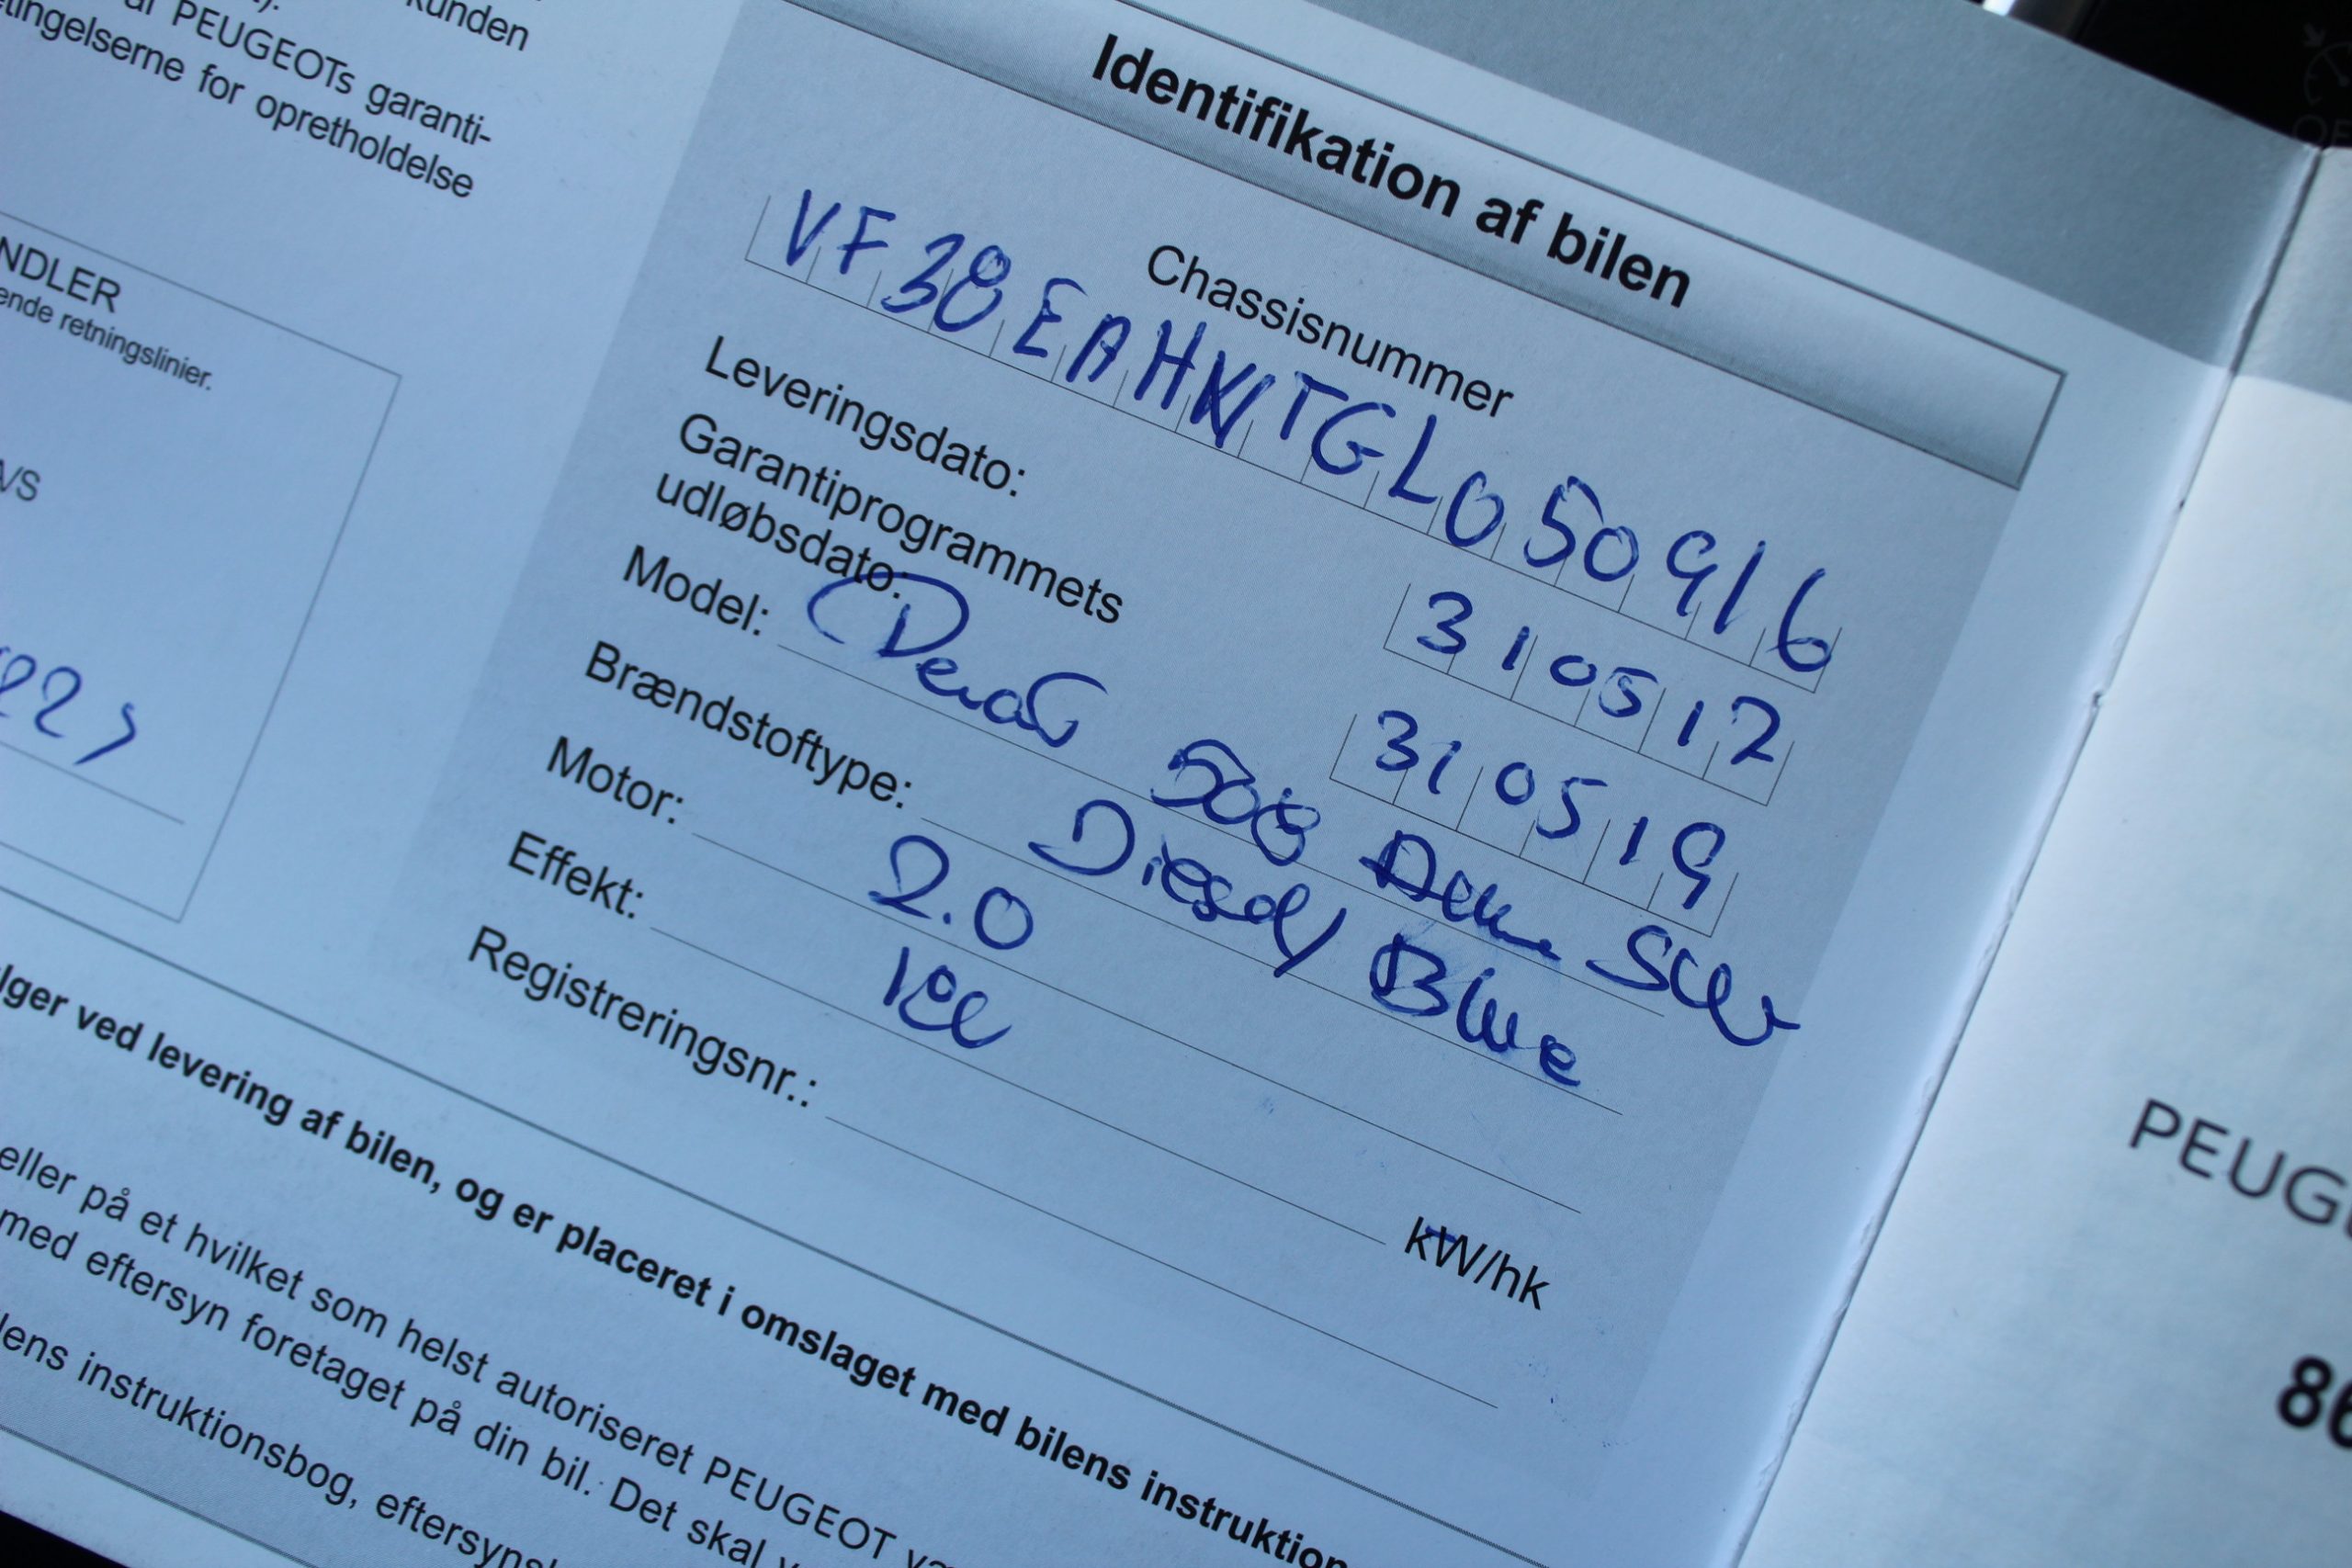 kunden
af PEUGEOTs garanti-
tingelserne for opretholdelse
NDLER
ende retningslinier.
VS
Identifikation af bilen
Chassisnummer
VF38EAHWTGL050916
Leveringsdato: 310517
Garantiprogrammets
udløbsdato: 310519
Model: 508
Brændstoftype: Diesel/Blue
Motor: 2.0
Effekt: kW/hk
Registreringsnr.:
lger ved levering af bilen, og er placeret i omslaget med bilens instruktion
eller på et hvilket som helst autoriseret PEUGEOT
med eftersyn foretaget på din bil. Det skal
lens instruktionsbog, eftersyns
PEUG
86